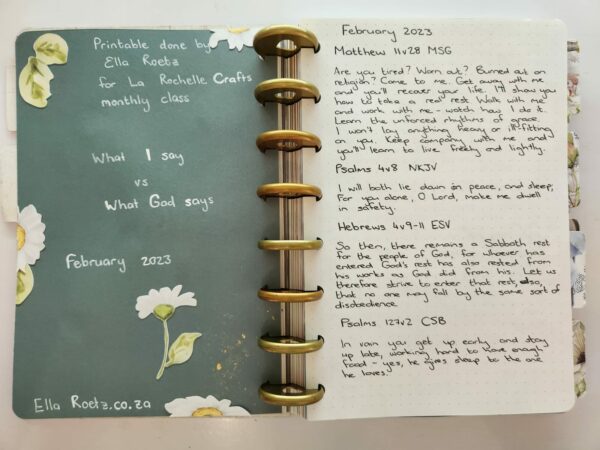 Printable done by
Ella Roetz
for La Rochelle Crafts
monthly class
What I say
vs
What God says
February 2023
Ella Roetz.co.za
February 2023
Matthew 11v28 MSG
Are you tired? Worn out? Burned out on
religion? Come to me. Get away with me
and you'll recover your life. I'll show you
how to take a real rest. Walk with me
and work with me - watch how I do it.
Learn the unforced rhythms of grace.
I won't lay anything heavy or ill-fitting
on you. Keep company with me and
you'll learn to live freely and lightly.
Psalms 4v8 NKJV
I will both lie down in peace, and sleep;
For you alone, O Lord, make me dwell
in safety.
Hebrews 4v9-11 ESV
So then, there remains a Sabbath rest
for the people of God, for whoever has
entered God's rest has also rested from
his works as God did from his. Let us
therefore strive to enter that rest, so
that no one may fall by the same sort of
disobedience.
Psalms 127v2 CSB
In vain you get up early and stay
up late, working hard to have enough
food - yes, he gives sleep to the one
he loves.